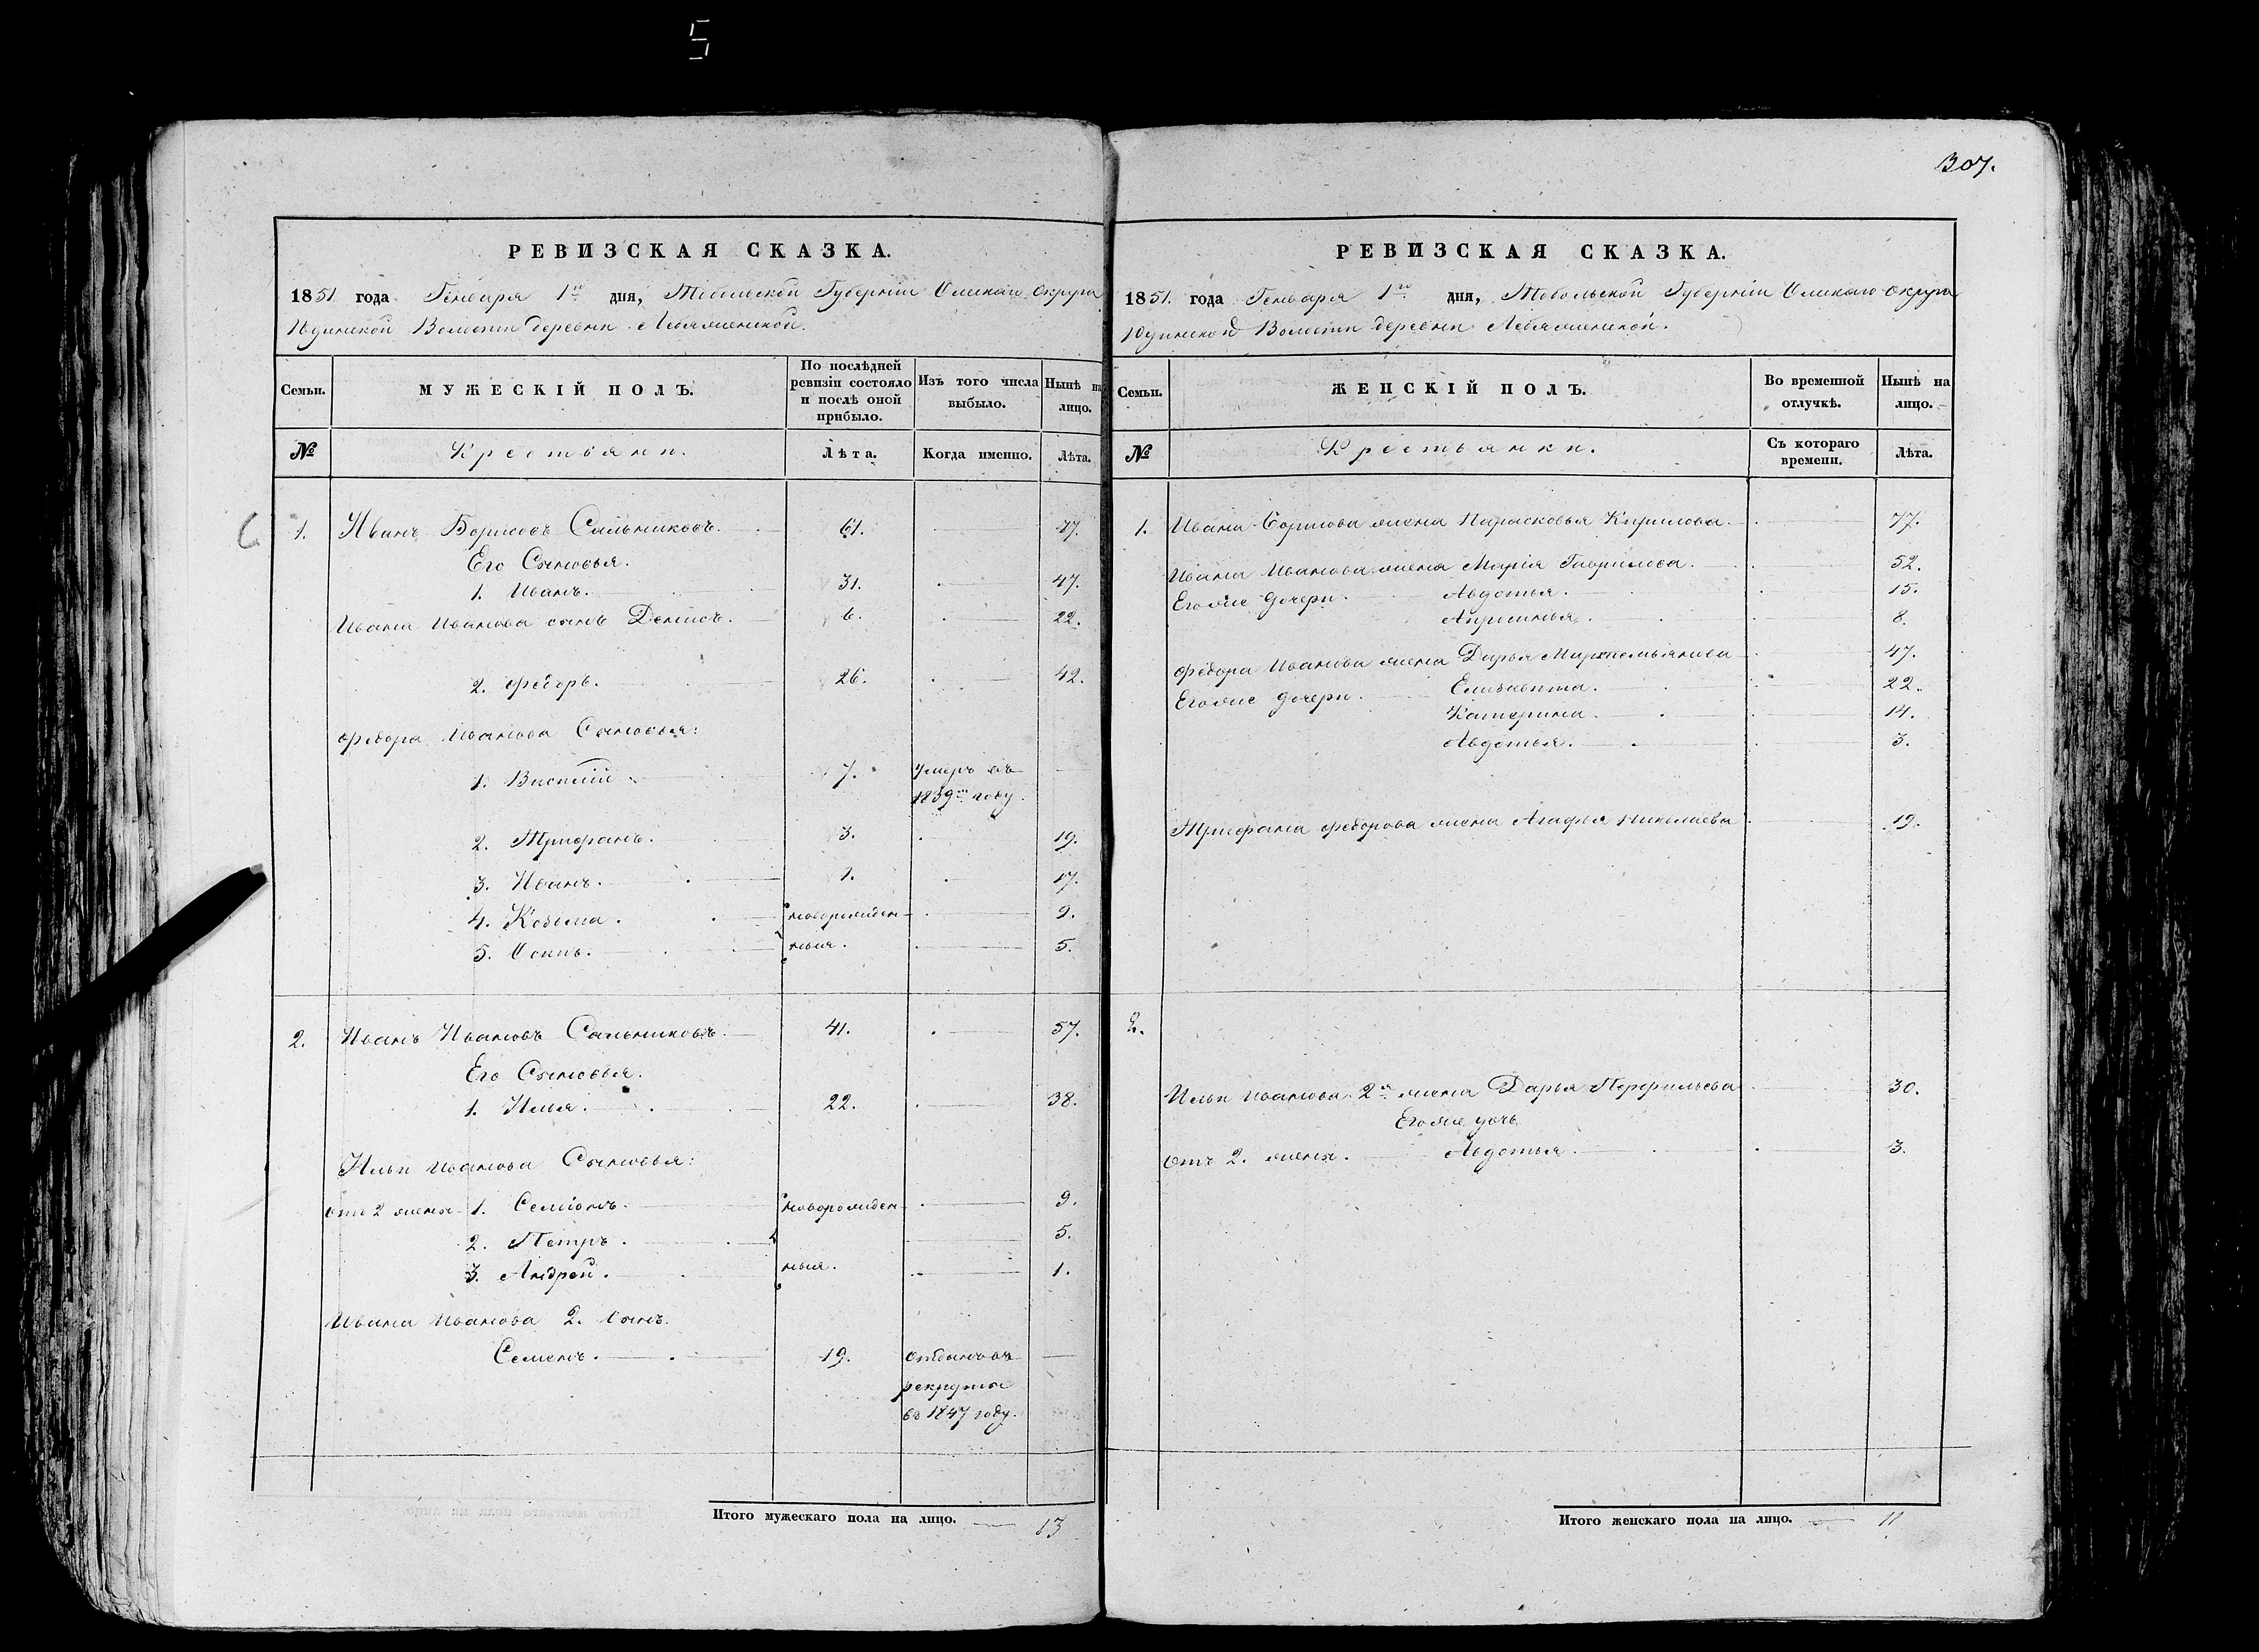 5
307.
РЕВИЗСКАЯ СКАЗКА.
1851 года Генваря 1го дня, Тобольской Губерніи Омскаго Округа
Юдинской Волости деревни Лебяжинской.
Семьи. МУЖЕСКІЙ ПОЛЪ. По послѣдней ревизіи состояло и послѣ оной прибыло. Изъ того числа выбыло. Нынѣ на лицо.
№ Крестьяни. Лѣта. Когда именно. Лѣта.
6 1. Иванъ Борисовъ Сальниковъ. 61. 77.
Его Сыновья.
1. Иванъ. 31. 47.
Ивана Иванова сынъ Денисъ. 6. 22.
2. Федоръ. 26. 42.
Федора Иванова Сыновья:
1. Василій 7. Умеръ въ
1839м году.
2. Трифанъ. 3. 19.
3. Иванъ. 1. 17.
4. Козьма. новорожден 9.
5. Осипъ. ныя. 5.
2. Иванъ Ивановъ Сальниковъ. 41. 57.
Его Сыновья.
1. Илья. 22. 38.
Ильи Иванова Сыновья:
отъ 2 жены 1. Семіонъ. новорожден 9.
2. Петръ. 5.
3. Андрей. ныя. 1.
Ивана Иванова 2. Сынъ.
Семенъ. 19. отданъ въ
рекруты
въ 1847 году.
Итого мужескаго пола на лицо. 13
РЕВИЗСКАЯ СКАЗКА.
1851. года Генваря 1го дня, Тобольской Губерніи Омскаго Округа
Юдинской Волости деревни Лебяжинской.
Семьи. ЖЕНСКІЙ ПОЛЪ. Во временной отлучкѣ. Нынѣ на лицо.
№ Крестьянки. Съ котораго времени. Лѣта.
1. Ивана Борисова жена Парасковья Кирилова. 77.
Ивана Иванова жена Марія Гаврилова. 52.
Егоже дочери. Авдотья. 15.
Апросинья. 8.
Федора Иванова жена Дарья 47.
Егоже дочери. Елизавета. 22.
Катерина. 14.
Авдотья. 3.
Трифана Федорова жена Агафья Николаева 19.
2.
Ильи Иванова 2я жена Дарья Перфильева 30.
Егоже дочь
отъ 2. жены. Авдотья. 3.
Итого женскаго пола на лицо. 11